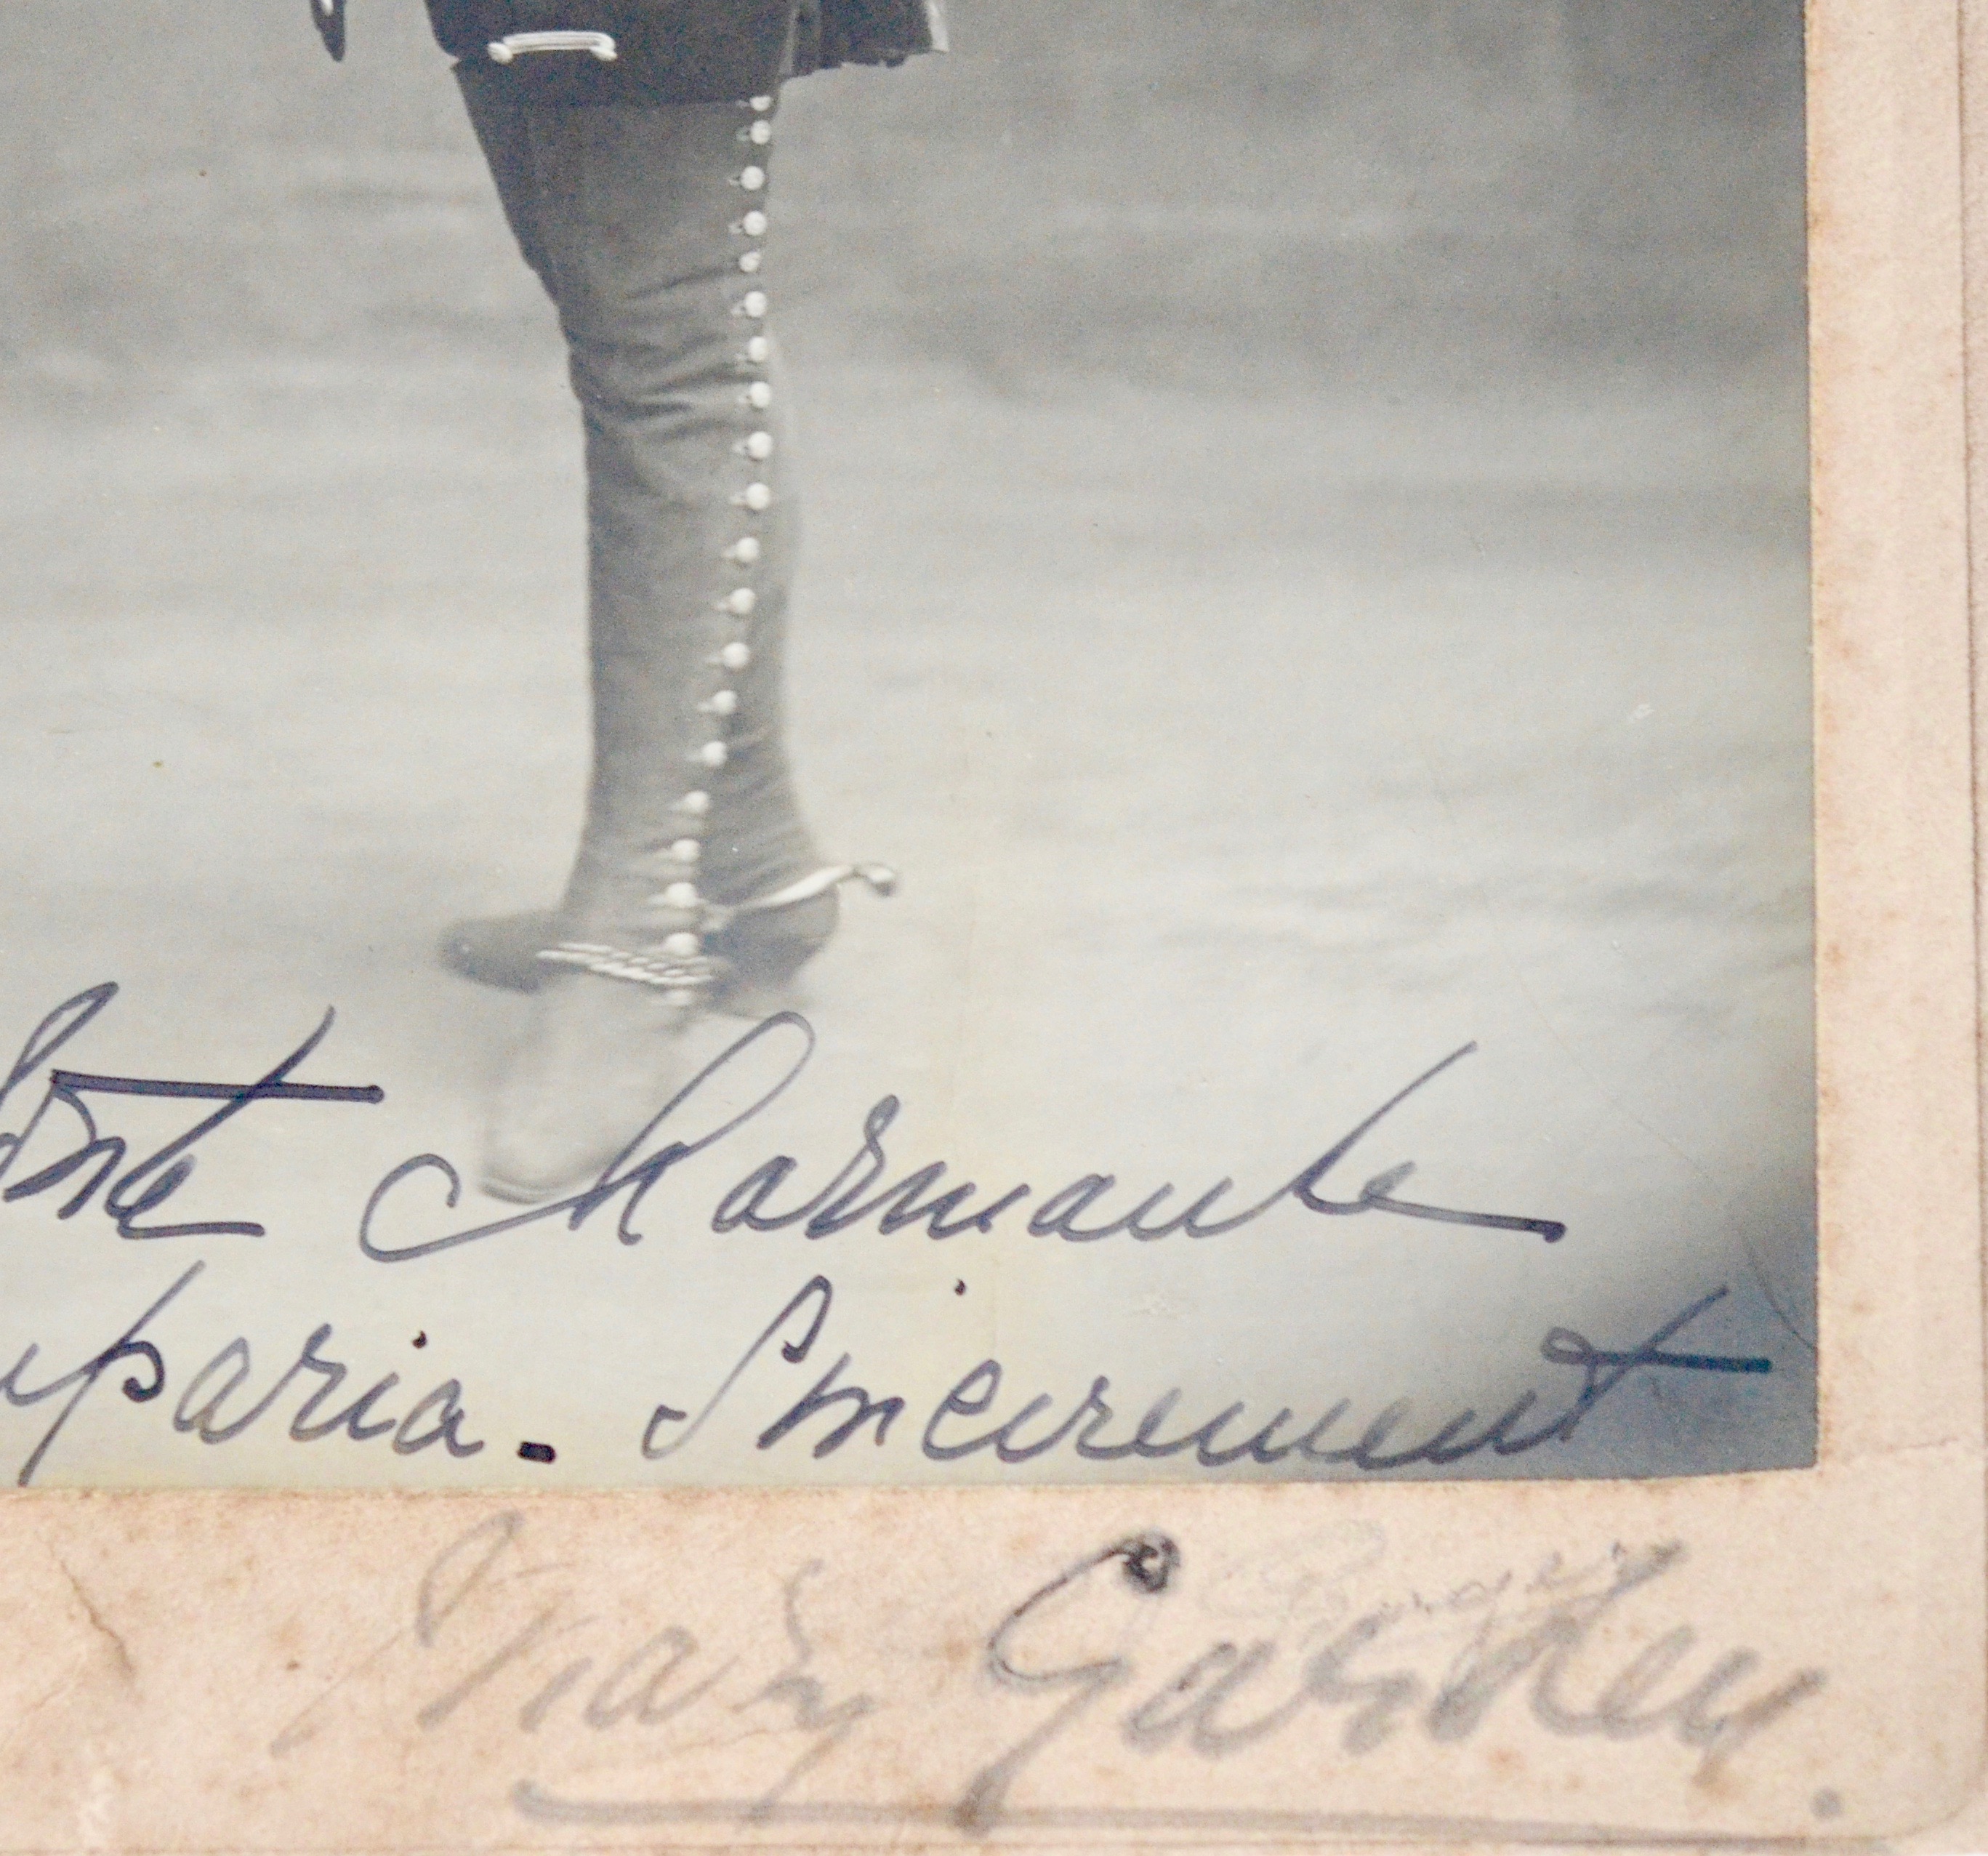 Charmante
uparia. Sincerement
Mary Garden.